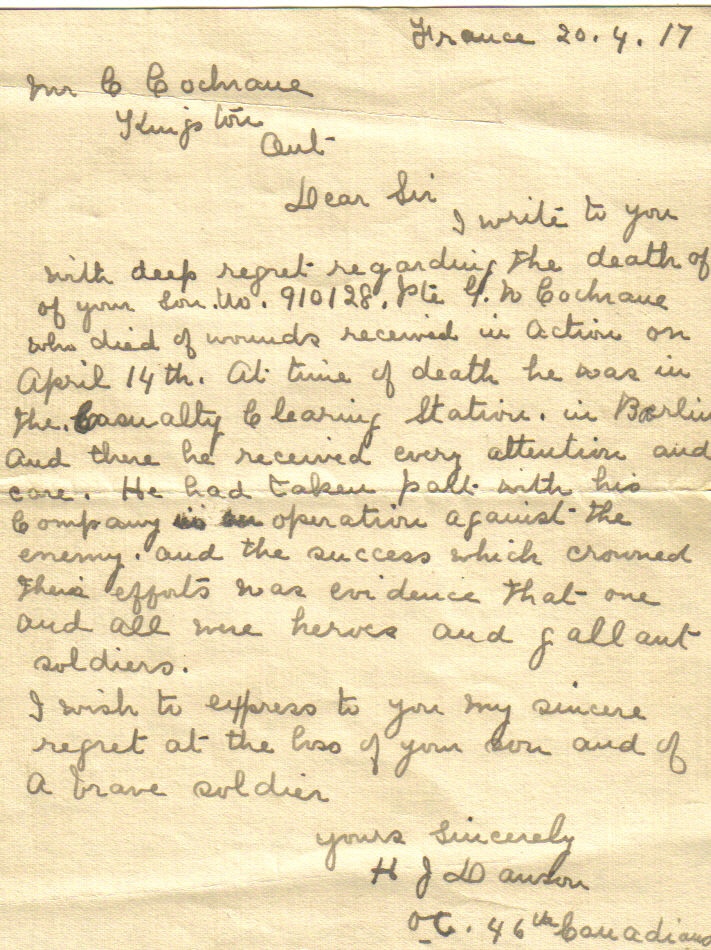 France 20.4.17
Mr C Cochrane
Kingston
Ont
Dear Sir
I write to you
with deep regret regarding the death of
of your son. No. 910128. Pte G. N Cochrane
who died of wounds received in Action on
April 14th. At time of death he was in
the. Casualty Clearing Station. in Barlin
And there he received every attention and
care. He had taken patt with his
Company in an operation against the
enemy. and the success which crowned
their efforts was evidence that one
and all were heroes and gallant
soldiers.
I wish to express to you my sincere
regret at the loss of your son and of
A brave soldier
yours Sincerely
H J Dawson
OC. 46th Canadians